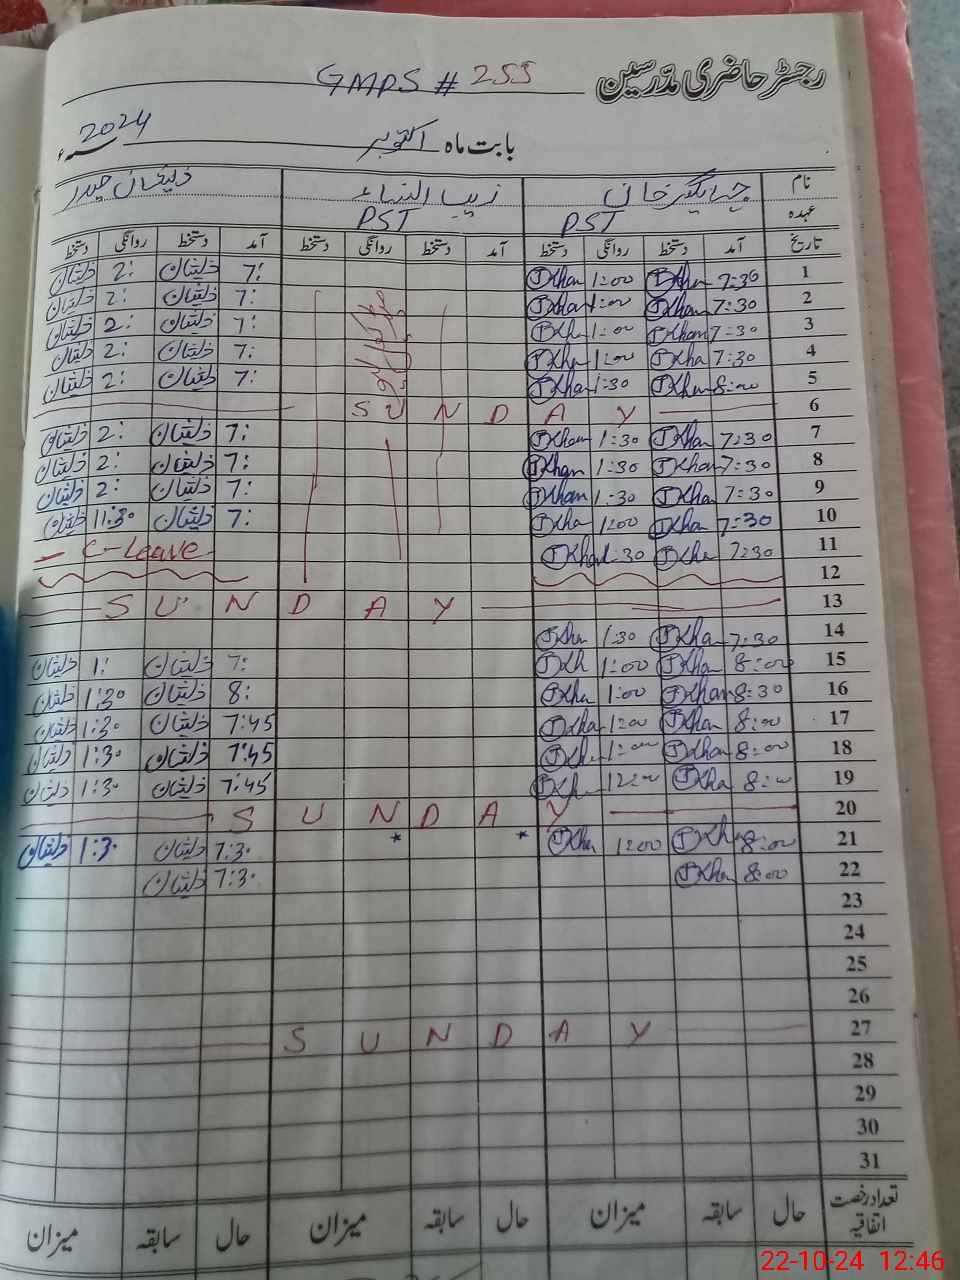 رجسٹر حاضری مدرسین GMPS # 255
بابت ماہ اکتوبر 2024ء
نام جہانگیر خان زیب النساء ذیشان حیدر
عہدہ PST PST
تاریخ آمد دستخط روانگی دستخط آمد دستخط روانگی دستخط آمد دستخط روانگی دستخط
1 7:30 Khan 1:00 Khan 7: ذیشان 2: ذیشان
2 7:30 Khan 1:00 Khan 7: ذیشان 2: ذیشان
3 7:30 Khan 1:00 Kha 7: ذیشان 2: ذیشان
4 7:30 Kha 1:00 Kha 7: ذیشان 2: ذیشان
5 8:00 Khan 1:30 Khan 7: ذیشان 2: ذیشان
6 SUNDAY
7 7:30 Khan 1:30 Khan 7: ذیشان 2: ذیشان
8 7:30 Khan 1:30 Khan 7: ذیشان 2: ذیشان
9 7:30 Khan 1:30 Khan 7: ذیشان 2: ذیشان
10 7:30 Kha 1:00 Kha 7: ذیشان 11:30 ذیشان
11 7:30 Kha 1:30 Khan C-Leave
12
13 SUNDAY
14 7:30 Khan 1:30 Kha
15 8:00 Khan 1:00 Kh 7: ذیشان 1: ذیشان
16 8:30 Khan 1:00 Kha 8: ذیشان 1:30 ذیشان
17 8:00 Khan 1:00 Kha 7:45 ذیشان 1:30 ذیشان
18 8:00 Khan 1:00 Kh 7:45 ذیشان 1:30 ذیشان
19 8:00 Kha 12:00 Kh 7:45 ذیشان 1:30 ذیشان
20 SUNDAY
21 8:00 Kha 1:00 Kha * * 7:30 ذیشان 1:30 ذیشان
22 8:00 Khan 7:30 ذیشان
23
24
25
26
27 SUNDAY
28
29
30
31
تعداد رخصت اتفاقیہ حال سابقہ میزان حال سابقہ میزان حال سابقہ میزان
22-10-24 12:46